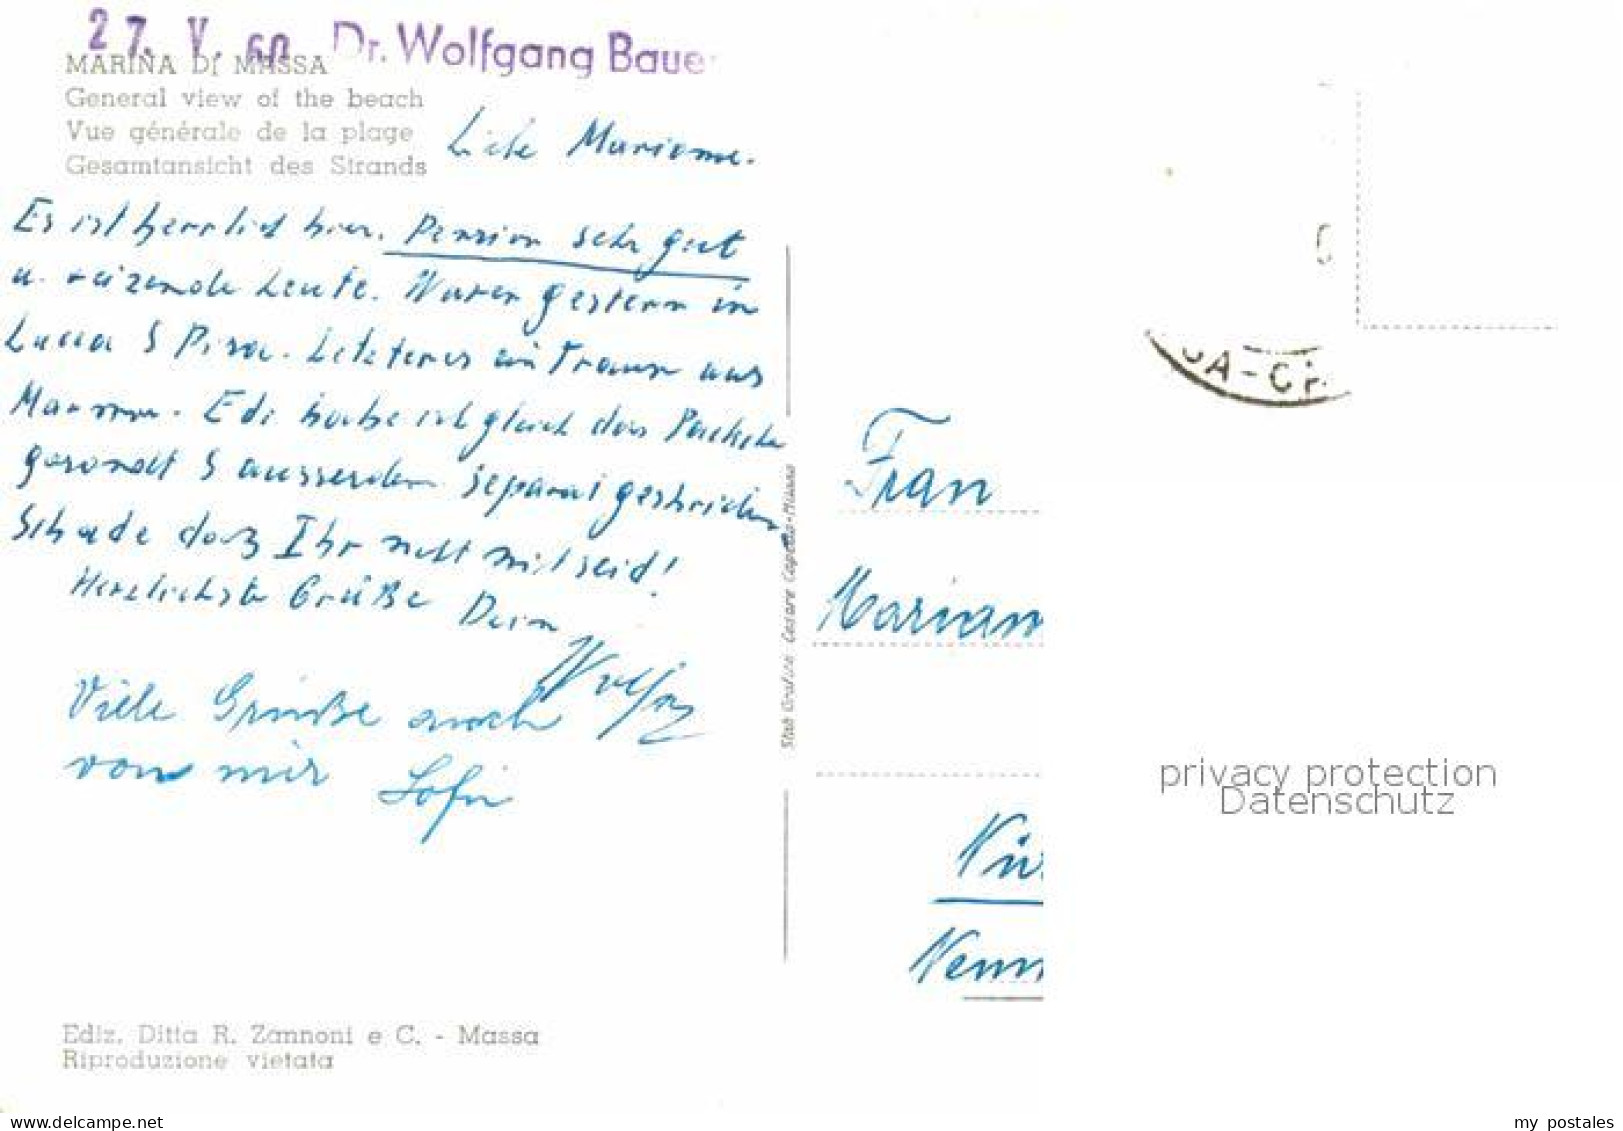 27. V. 60 Dr. Wolfgang Baue
MARINA DI MASSA
General view of the beach
Vue générale de la plage
Gesamtansicht des Strands
Liebe Marianne.
Es ist herrlich hier. Pension sehr gut
u. reizende Leute. Waren gestern in
Lucca & Pisa. Letzteres ein Traum aus
Marmor. Edi habe ich gleich das Packerl
gesandt & ausserdem separat geschrieben
Schade daß Ihr nicht mit seid!
Herzlichste Grüße Dein
Wolfg
Viele Grüße auch
von mir Sofie
Stab Grafici Cesare Capello-Milano
Frau
Mariann
Nür
Nenn
SA-C
privacy protection
Datenschutz
Ediz. Ditta R. Zannoni e C. - Massa
Riproduzione vietata
www.delcampe.net
my_postales